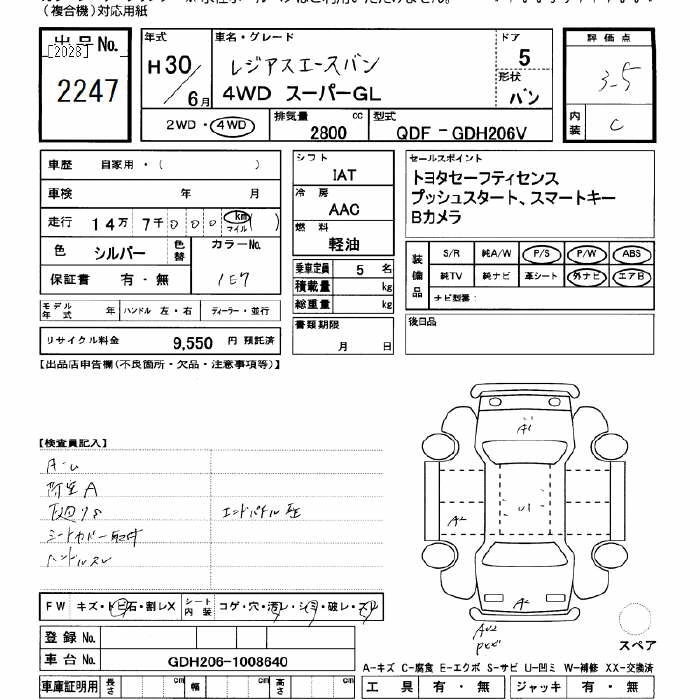 (複合機)対応用紙
出品No. [2028] 2247
年式 H30 / 6月
車名・グレード レジアスエースバン
4WD スーパーGL
ドア 5
形状 バン
評価点 3.5
内装 C
2WD・4WD
排気量 2800 cc
型式 QDF - GDH206V
車歴 自家用・( )
車検 年 月
走行 14万 7千 0 0 0 km マイル ( )
色 シルバー 色替 カラーNo. 1E7
保証書 有・無
モデル年式 年 ハンドル 左・右 ディーラー・並行
リサイクル料金 9,550 円 預託済
シフト IAT
冷房 AAC
燃料 軽油
乗車定員 5 名
積載量 kg
総重量 kg
書類期限 月 日
セールスポイント
トヨタセーフティセンス
プッシュスタート、スマートキー
Bカメラ
装備品 S/R 純A/W P/S P/W ABS
純TV 純ナビ 革シート 外ナビ エアB
ナビ型番:
後日品
【出品店申告欄(不良箇所・欠品・注意事項等)】
【検査員記入】
A-U
荷室A
下廻りS
シートカバー取付
ハンドルスレ
A1
U1
A2
A2
FW キズ・トビ石・割レX シート内装 コゲ・穴・汚レ・シミ・破レ・スレ
登録No.
車台No. GDH206-1008640
車庫証明用 長さ cm 幅 cm 高さ cm
スペア
A-キズ C-腐食 E-エクボ S-サビ U-凹ミ W-補修 XX-交換済
工具 有・無 ジャッキ 有・無